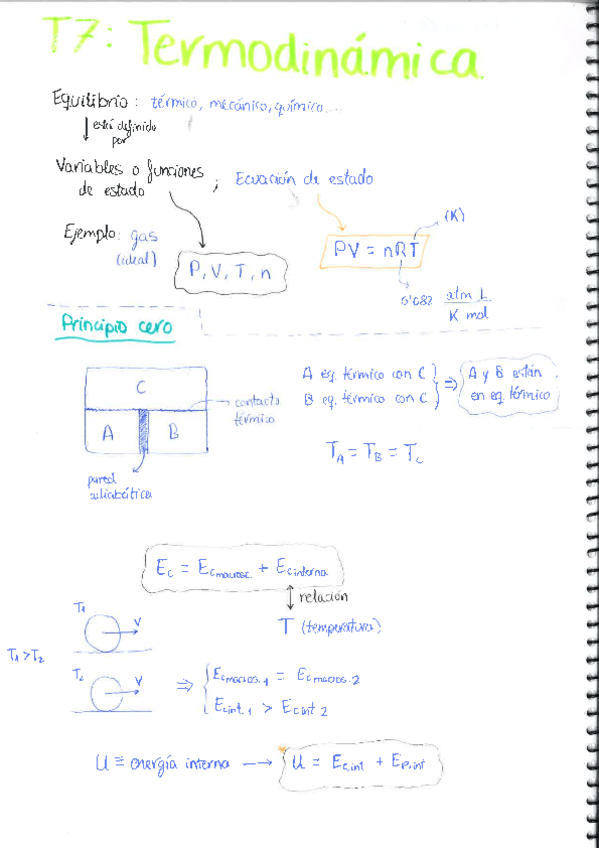 T7: Termodinámica
Equilibrio: térmico, mecánico, químico...
está definido
por
Variables o funciones
de estado
; Ecuación de estado
Ejemplo: gas
(ideal)
P, V, T, n
PV = nRT
(K)
0'082 atm L
K mol
Principio cero
C
A
B
contacto
térmico
pared
adiabática
A eq. térmico con C
B eq. térmico con C
⇒ A y B están
en eq. térmico
T_A = T_B = T_C
E_c = E_c macrosc. + E_c interna
relación
T (temperatura)
T₁
V
T₁ > T₂
T₂
V
⇒ E_c macros. 1 = E_c macros. 2
E_c int. 1 > E_c int 2
U ≡ energía interna → U = E_c,int + E_p,int